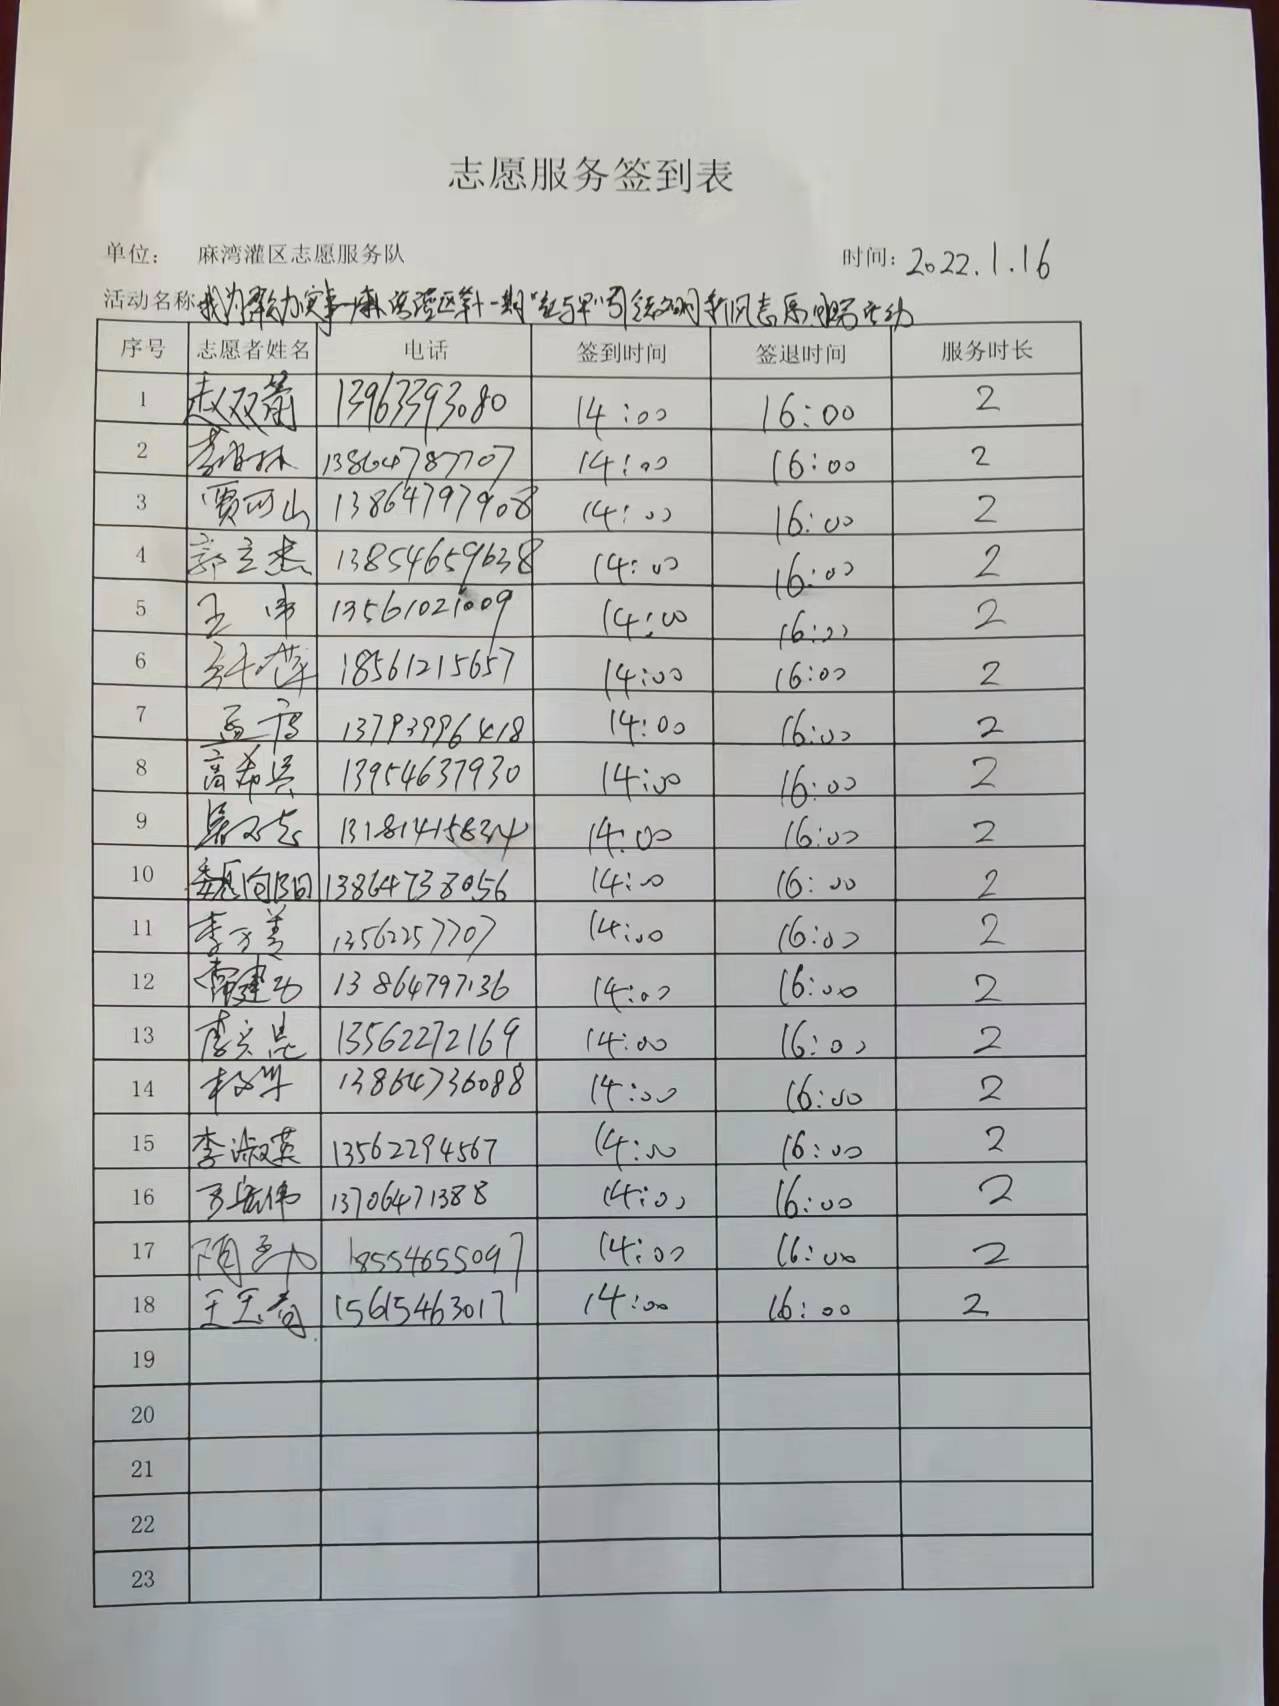 志愿服务签到表
单位: 麻湾灌区志愿服务队 时间: 2022.1.16
活动名称 我为群众办实事—麻湾灌区第十一期"红马甲"引领文明新风志愿服务活动
序号 志愿者姓名 电话 签到时间 签退时间 服务时长
1 赵双 13963393080 14:00 16:00 2
2 李 林 13864787707 14:00 16:00 2
3 贾可山 13864797908 14:00 16:00 2
4 郭立杰 13854659638 14:00 16:00 2
5 王伟 13561021009 14:00 16:00 2
6 萍 18561215657 14:00 16:00 2
7 孟 13793996418 14:00 16:00 2
8 高希兵 13954637930 14:00 16:00 2
9 吴 志 13181415834 14:00 16:00 2
10 魏向阳 13864738056 14:00 16:00 2
11 李万善 13562257707 14:00 16:00 2
12 雷建 13864797136 14:00 16:00 2
13 李 昆 13562272169 14:00 16:00 2
14 13864736088 14:00 16:00 2
15 李淑英 13562294567 14:00 16:00 2
16 伟 13706471388 14:00 16:00 2
17 18554655097 14:00 16:00 2
18 王玉春 15615463017 14:00 16:00 2
19
20
21
22
23